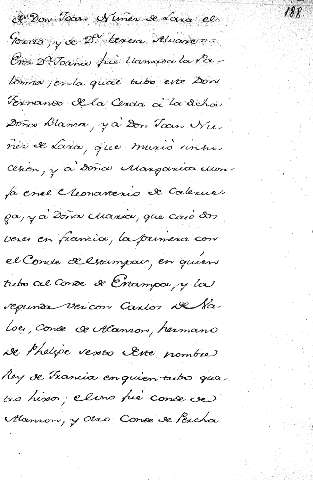 188
de Don Joan Nuñez de Lara el
Gordo, y de D.ª teresa Alvarez
esta D.ª Joana fue llamada la Pa-
lomina; en la qual tubo este Don
Fernando de la Cerda â la dicha
Doña Blanca, y â Don Joan Nu-
ñez de Lara, que murió sin su-
cesion, y â Doña Margarita Mon-
ja en el Monasterio de Calerue-
ga, y â Doña Maria, que casó dos
veces en francia, la primera con
el Conde de Estampas, en quien
tubo al Conde de Estampa, y la
segunda vez con Carlos de Va-
lois, Conde de Alanson, hermano
de Phelipe sexto de este nombre
Rey de Francia en quien tubo qua-
tro hixos; el uno fué Conde de
Alanson, y otro Conde de Percha